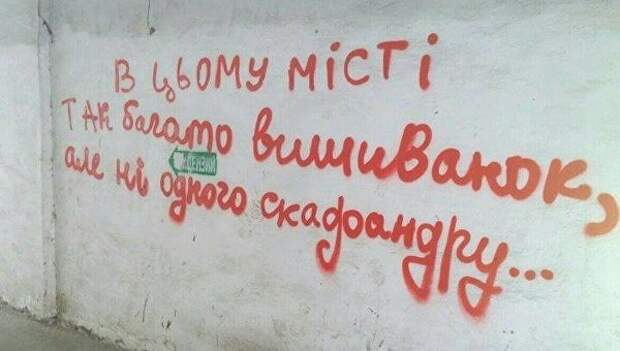 В цьому місті
так багато вишиванок,
але ні одного скафандру...